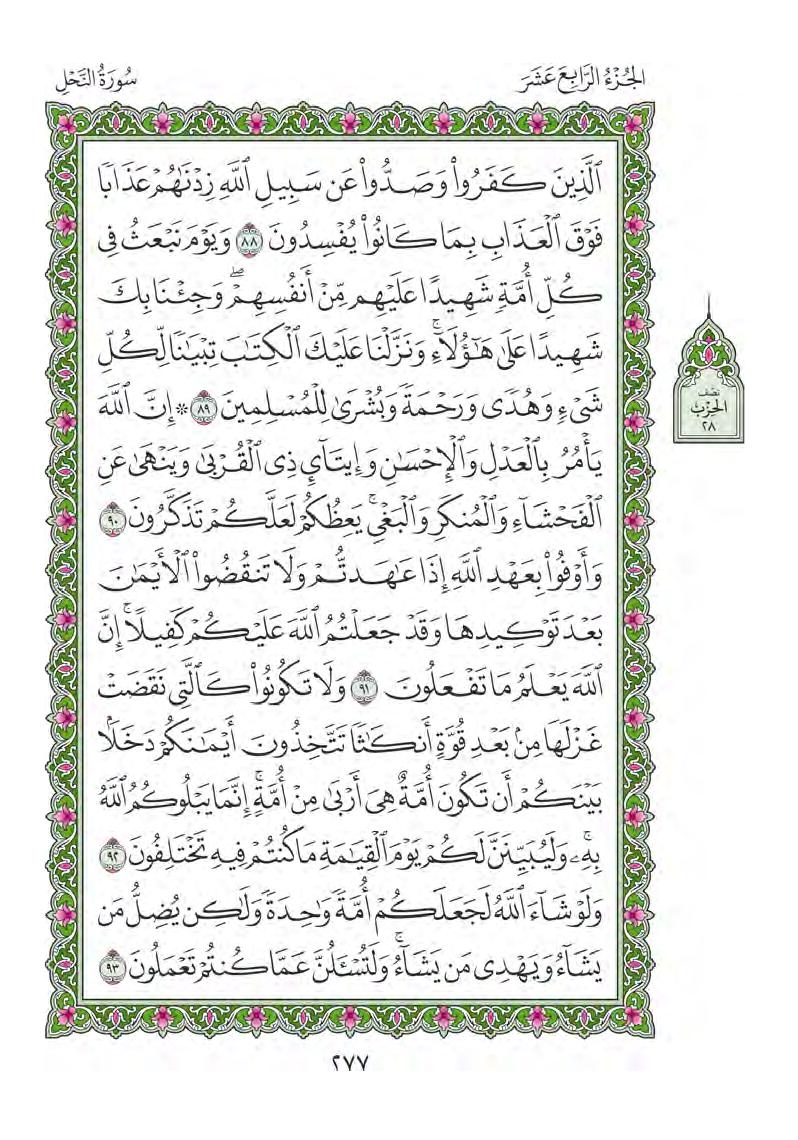 الجُزْءُ الرَّابِعَ عَشَرَ
سُورَةُ النَّحْلِ
ٱلَّذِينَ كَفَرُوا۟ وَصَدُّوا۟ عَن سَبِيلِ ٱللَّهِ زِدْنَٰهُمْ عَذَابًا
فَوْقَ ٱلْعَذَابِ بِمَا كَانُوا۟ يُفْسِدُونَ ٨٨ وَيَوْمَ نَبْعَثُ فِى
كُلِّ أُمَّةٍ شَهِيدًا عَلَيْهِم مِّنْ أَنفُسِهِمْ ۖ وَجِئْنَا بِكَ
شَهِيدًا عَلَىٰ هَٰٓؤُلَآءِ ۚ وَنَزَّلْنَا عَلَيْكَ ٱلْكِتَٰبَ تِبْيَٰنًا لِّكُلِّ
شَىْءٍ وَهُدًى وَرَحْمَةً وَبُشْرَىٰ لِلْمُسْلِمِينَ ٨٩ ۞ إِنَّ ٱللَّهَ
يَأْمُرُ بِٱلْعَدْلِ وَٱلْإِحْسَٰنِ وَإِيتَآئِ ذِى ٱلْقُرْبَىٰ وَيَنْهَىٰ عَنِ
ٱلْفَحْشَآءِ وَٱلْمُنكَرِ وَٱلْبَغْىِ ۚ يَعِظُكُمْ لَعَلَّكُمْ تَذَكَّرُونَ ٩٠
وَأَوْفُوا۟ بِعَهْدِ ٱللَّهِ إِذَا عَٰهَدتُّمْ وَلَا تَنقُضُوا۟ ٱلْأَيْمَٰنَ
بَعْدَ تَوْكِيدِهَا وَقَدْ جَعَلْتُمُ ٱللَّهَ عَلَيْكُمْ كَفِيلًا ۚ إِنَّ
ٱللَّهَ يَعْلَمُ مَا تَفْعَلُونَ ٩١ وَلَا تَكُونُوا۟ كَٱلَّتِى نَقَضَتْ
غَزْلَهَا مِنۢ بَعْدِ قُوَّةٍ أَنكَٰثًا تَتَّخِذُونَ أَيْمَٰنَكُمْ دَخَلًۢا
بَيْنَكُمْ أَن تَكُونَ أُمَّةٌ هِىَ أَرْبَىٰ مِنْ أُمَّةٍ ۚ إِنَّمَا يَبْلُوكُمُ ٱللَّهُ
بِهِۦ ۚ وَلَيُبَيِّنَنَّ لَكُمْ يَوْمَ ٱلْقِيَٰمَةِ مَا كُنتُمْ فِيهِ تَخْتَلِفُونَ ٩٢
وَلَوْ شَآءَ ٱللَّهُ لَجَعَلَكُمْ أُمَّةً وَٰحِدَةً وَلَٰكِن يُضِلُّ مَن
يَشَآءُ وَيَهْدِى مَن يَشَآءُ ۚ وَلَتُسْـَٔلُنَّ عَمَّا كُنتُمْ تَعْمَلُونَ ٩٣
نصف
الحزب
٢٨
٢٧٧